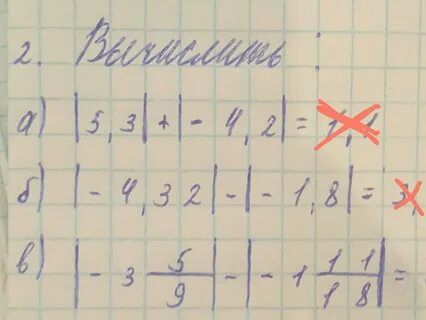 2. Вычислить:
а) |5,3|+|-4,2|= 1,1
б) |-4,32|-|-1,8|= 3,
в) |-3 5/9|-|-1 11/18|=